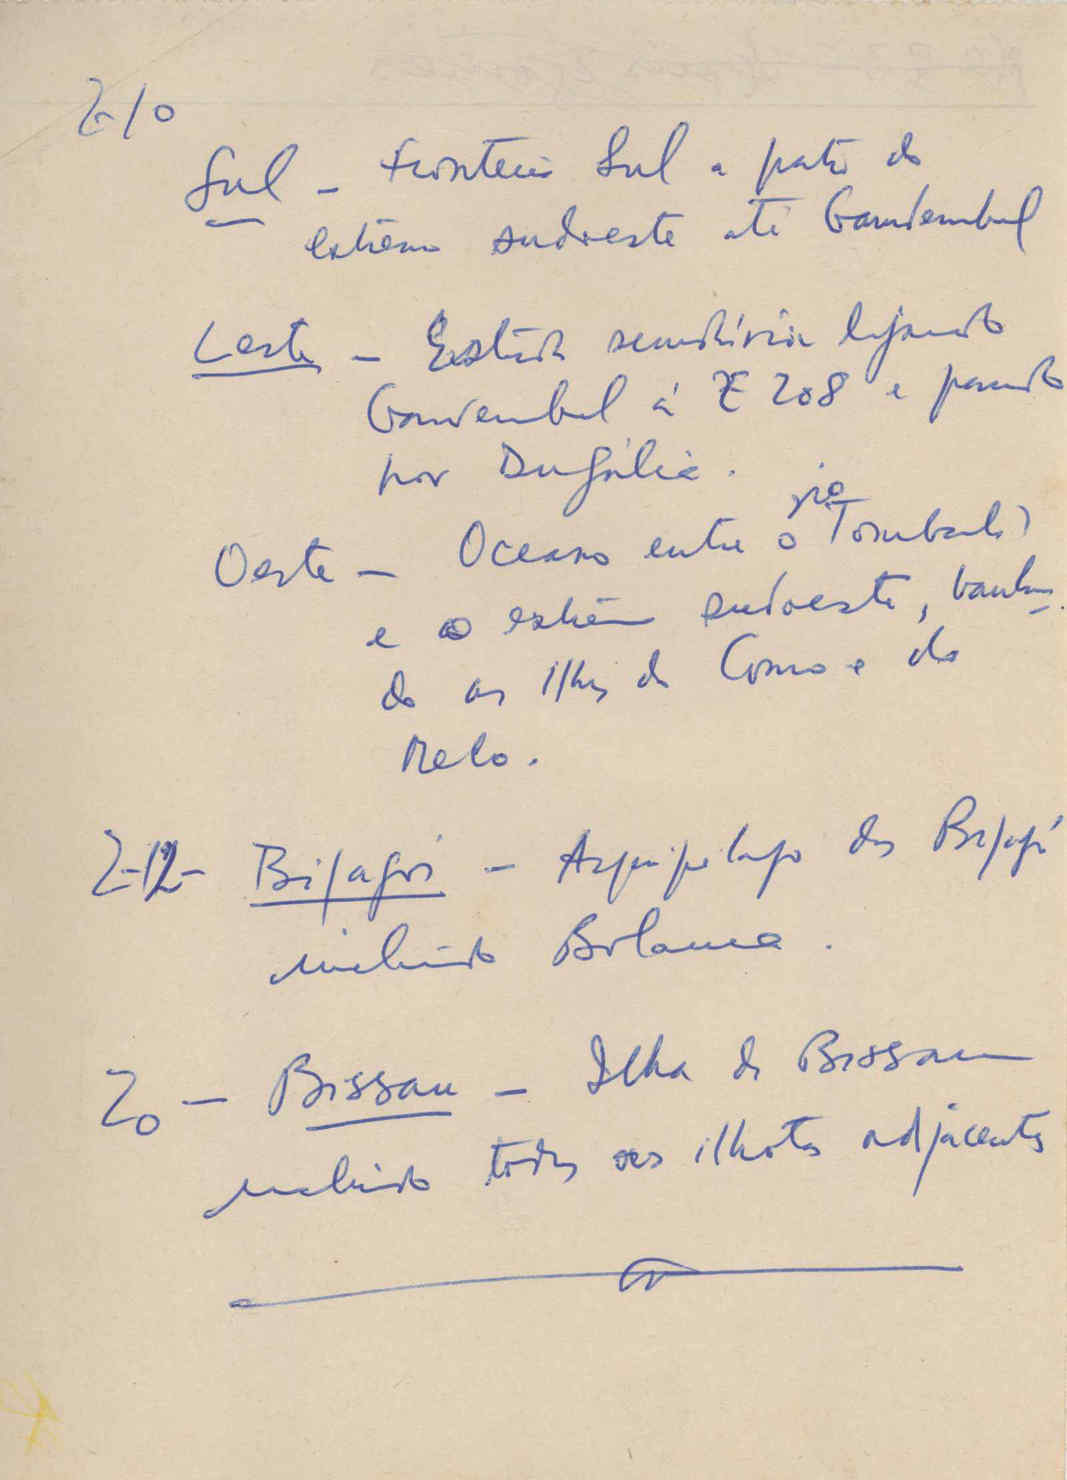 Z-10
Sul - Fronteira Sul a partir do
extremo sudoeste até Gandembul
Leste - Estrada secundária ligando
Gandembul à 208 e passando
por Dugália.
rio
Oeste - Oceano entre o Tombali
e o extremo sudoeste, incluin-
do as ilhas de Como e do
Melo.
Z-12- Bijagós - Arquipélago dos Bijagós
incluindo Bolama.
Z0 - Bissau - Ilha de Bissau
incluindo todos os ilhotas adjacentes